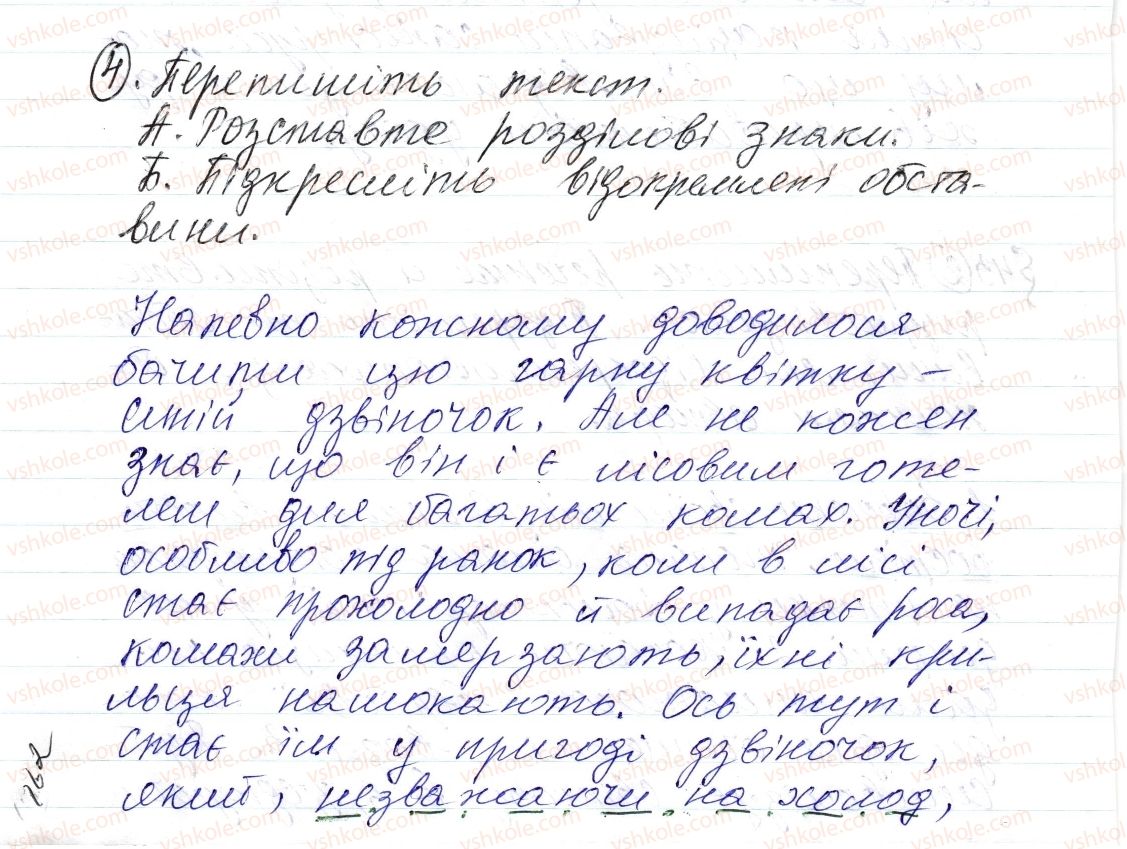 4. Перепишіть текст.
А. Розставте розділові знаки.
Б. Підкресліть відокремлені обста-
вини.
Напевно кожному доводилося
бачити цю гарну квітку –
синій дзвіночок. Але не кожен
знає, що він і є лісовим готе-
лем для багатьох комах. Уночі,
особливо під ранок, коли в лісі
стає прохолодно й випадає роса,
комахи замерзають, їхні кри-
льця намокають. Ось тут і
стає їм у пригоді дзвіночок,
який, незважаючи на холод,